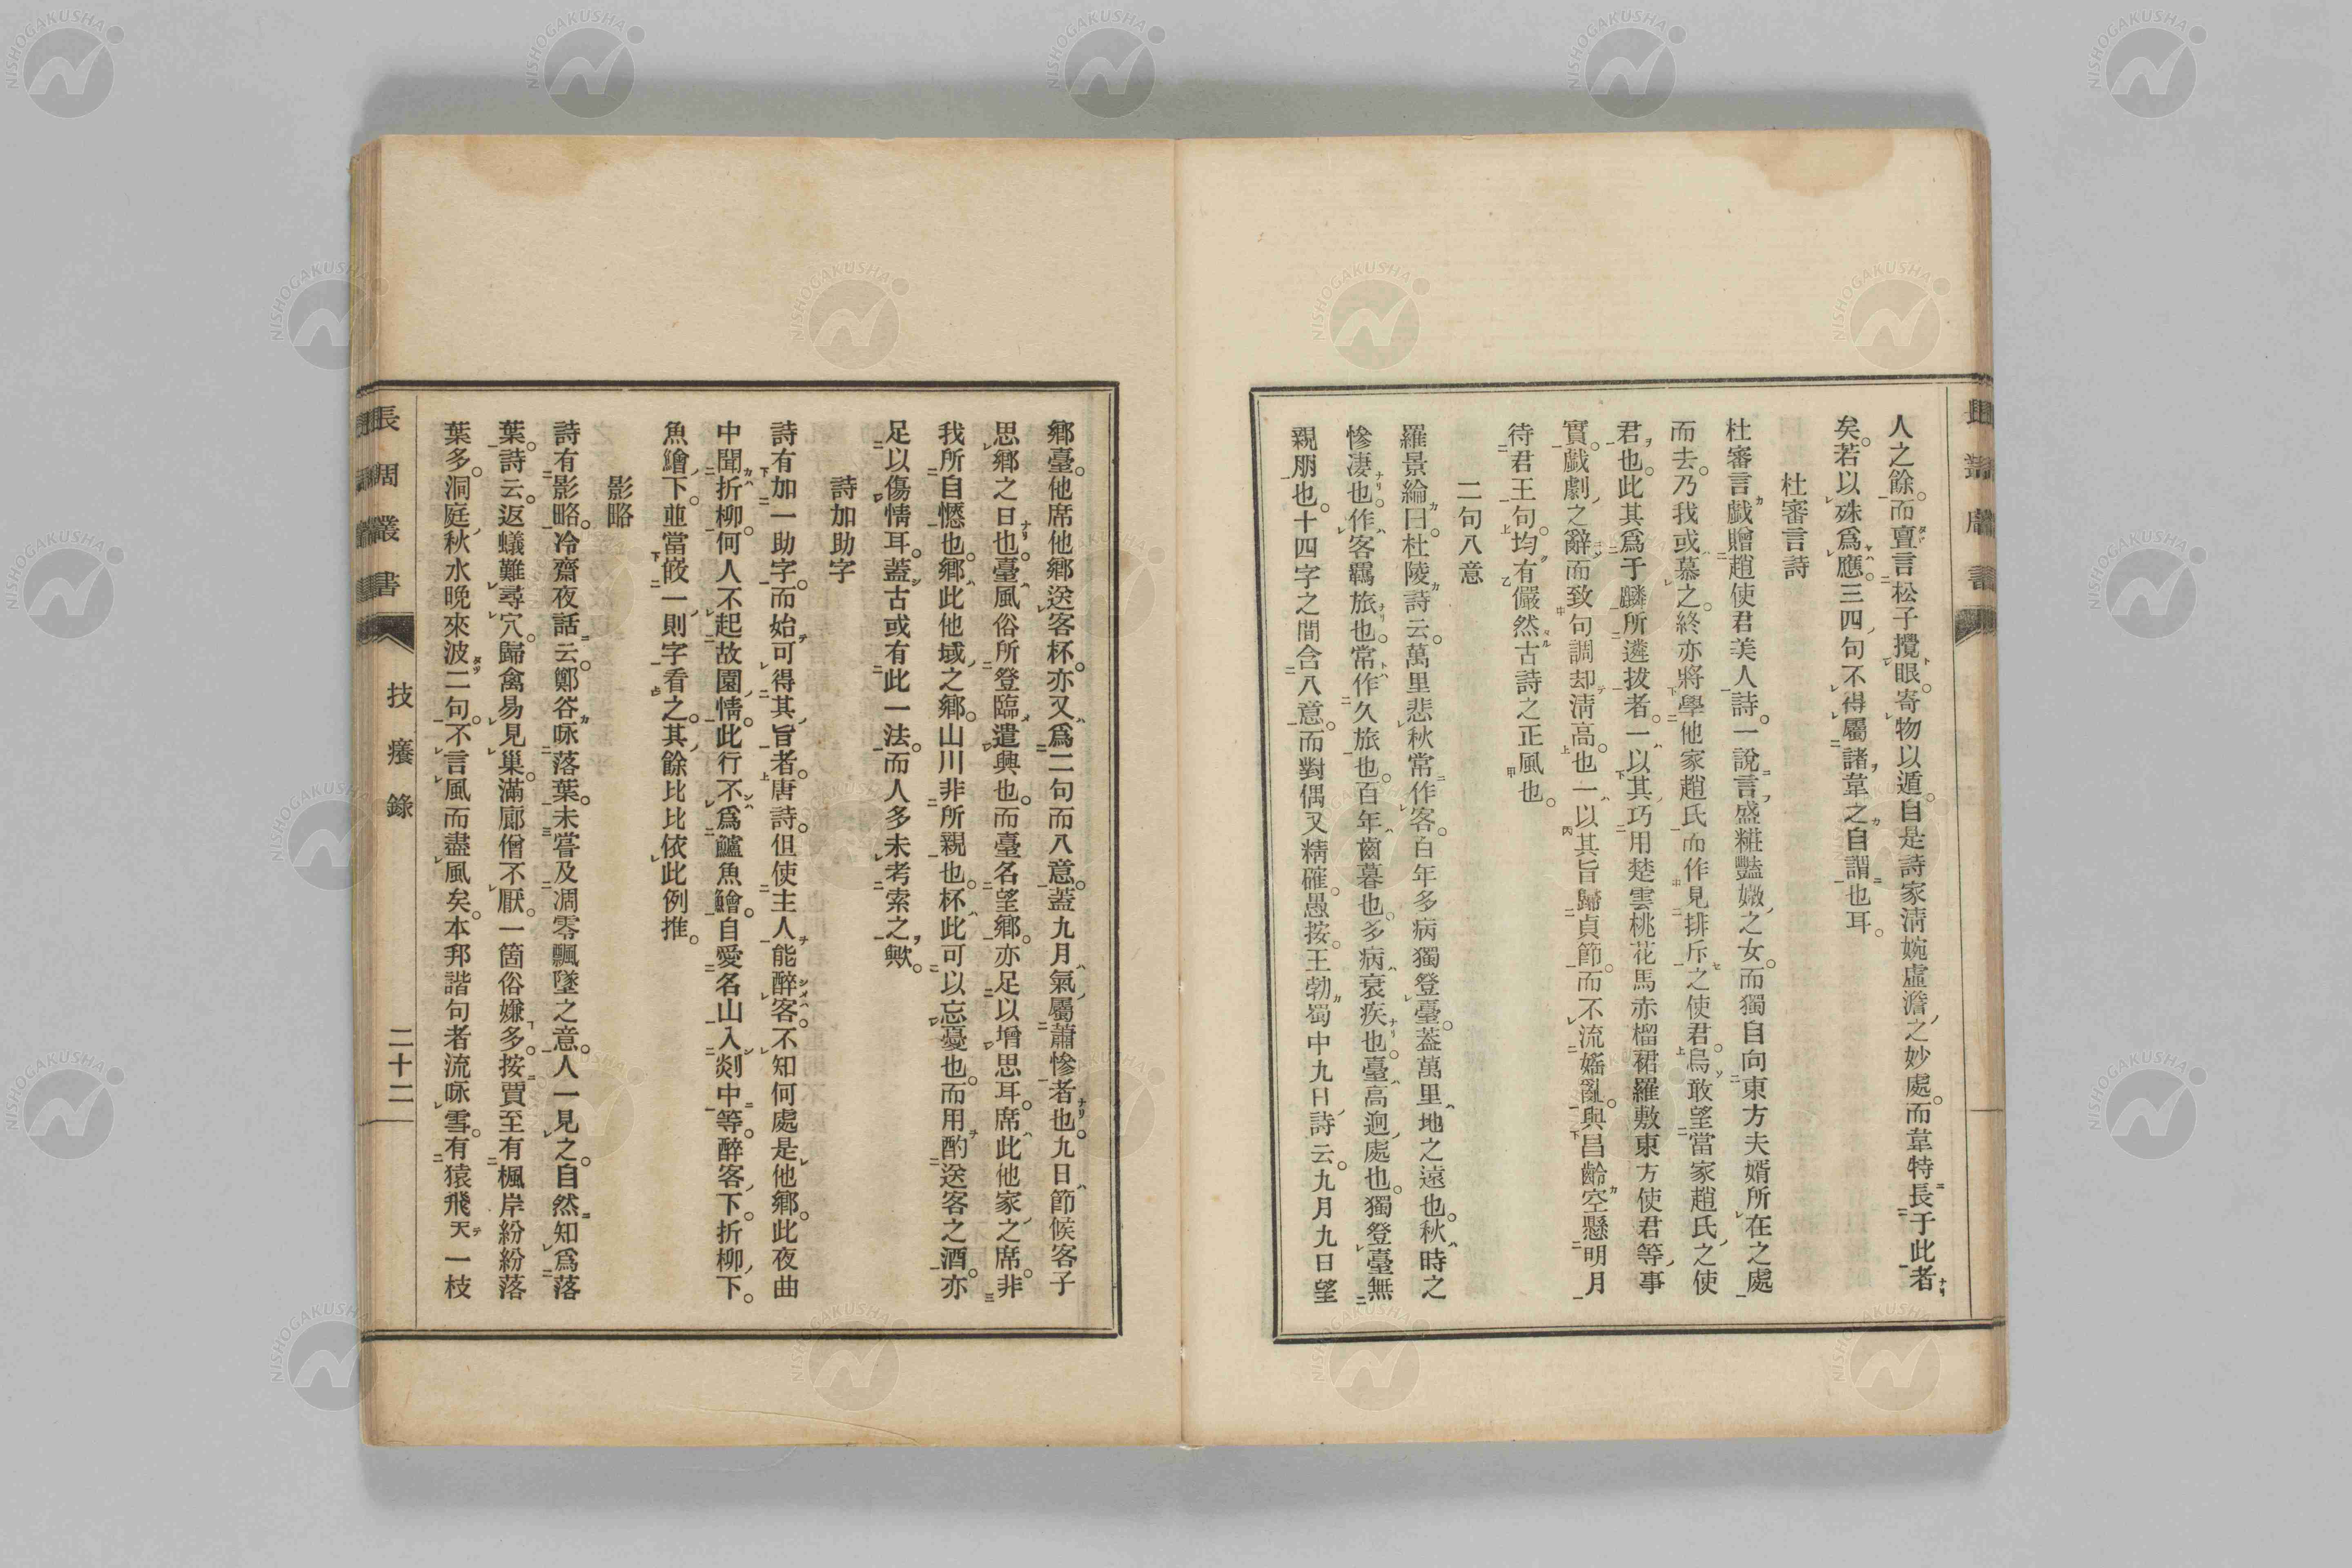 人之餘。而亶言松子攪眼。寄物以遁。自是詩家淸婉虛澹之妙處。而韋特長于此者
矣。若以殊爲應。三四句不得屬諸韋之自謂也耳。
杜審言詩
杜審言戲贈趙使君美人詩。一說言盛糚豔嫩之女。而獨自向東方夫婿所在之處
而去。乃我或慕之。終亦將學他家趙氏而作見排斥之使君。烏敢望當家趙氏之使
君也。此其爲于麟所遴拔者。一以其巧用楚雲桃花馬赤榴裙羅敷東方使君等事
實。戲劇之辭而致句調却淸高也。一以其旨歸貞節。而不流婬亂。與昌齡空懸明月
待君王句。均有儼然古詩之正風也。
二句八意
羅景綸曰。杜陵詩云。萬里悲秋常作客。百年多病獨登臺。蓋萬里地之遠也。秋時之
慘凄也。作客羈旅也。常作久旅也。百年齒暮也。多病衰疾也。臺高迥處也。獨登臺無
親朋也。十四字之間含八意。而對偶又精確。愚按。王勃蜀中九日詩云。九月九日望
鄉臺。他席他鄉送客杯。亦又爲二句而八意。蓋九月氣屬蕭慘者也。九日節候客子
思鄉之日也。臺風俗所登臨遣興也。而臺名望鄉。亦足以增思耳。席此他家之席。非
我所自憖也。鄉此他域之鄉。山川非所親也。杯此可以忘憂也。而用酌送客之酒。亦
足以傷情耳。蓋古或有此一法。而人多未考索之歟。
詩加助字
詩有加一助字。而始可得其旨者。唐詩。但使主人能醉客。不知何處是他鄉。此夜曲
中聞折柳。何人不起故園情。此行不爲鱸魚鱠。自愛名山入剡中等。醉客下。折柳下。
魚鱠下。竝當餀一則字看之。其餘比比依此例推。
影略
詩有影略。冷齋夜話云。鄭谷咏落葉。未嘗及凋零飄墜之意。人一見之。自然知爲落
葉。詩云。返蟻難尋穴。歸禽易見巢。滿廊僧不厭。一箇俗嫌多。按賈至有楓岸紛紛落
葉多。洞庭秋水晚來波二句。不言風而盡風矣。本邦諧句者流咏雪。有猿飛天一枝
長周叢書
技癢錄
二十二
NISHOGAKUSHA